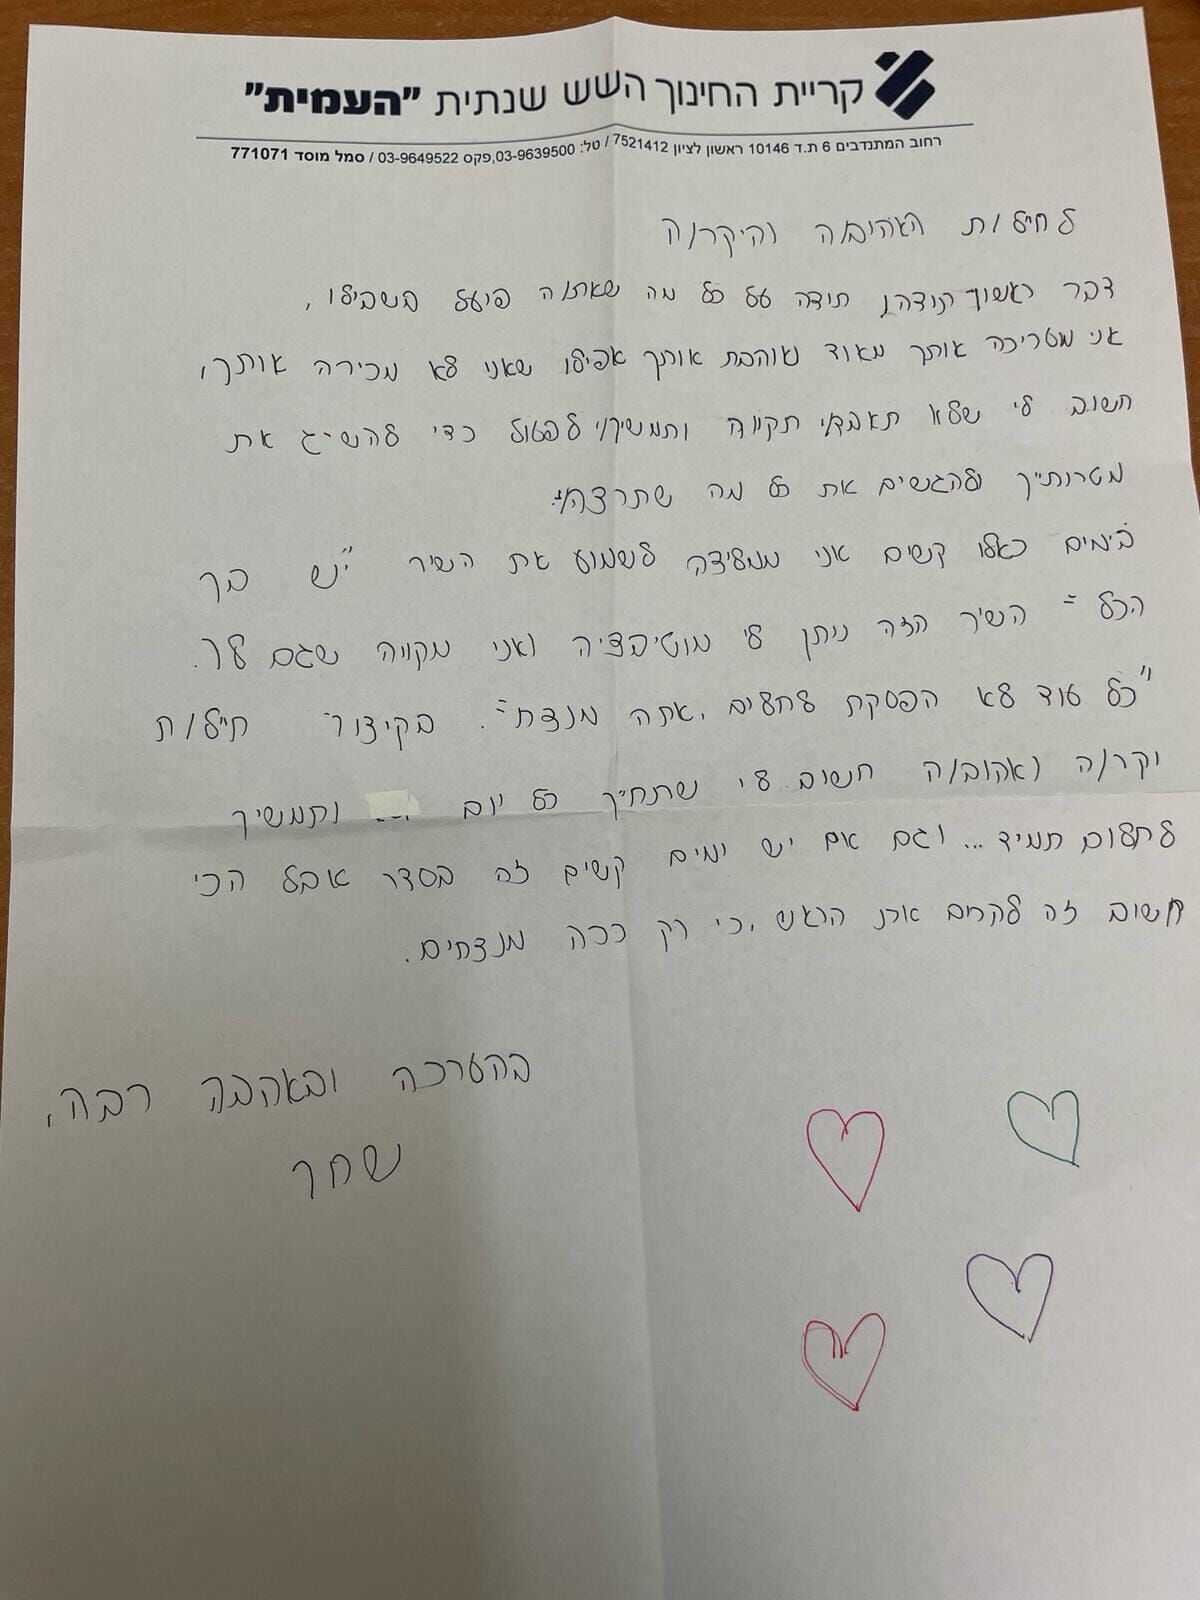 קריית החינוך השש שנתית "העמית"
רחוב המתנדבים 6 ת.ד 10146 ראשון לציון 7521412 / טל: 03-9639500, פקס 03-9649522 / סמל מוסד 771071
לחייל/ת האהוב/ה והיקר/ה
דבר ראשון תודה, על כל מה שאת/ה פועל בשבילנו,
אני מעריכה אותך מאוד ואוהבת אותך אפילו שאני לא מכירה אותך,
חשוב לי שלא תאבד/י תקווה ותמשיכ/י לפעול כדי להשיג את
מטרותיך ולהגשים את כל מה שתרצה/י.
בימים כאלו קשים אני ממליצה לשמוע את השיר "יש בך
הכל" השיר הזה נותן לי מוטיבציה ואני מקווה שגם לך.
"כל עוד לא הפסקת לחלום, אתה מנצח". בקיצור חייל/ת
יקר/ה ואהוב/ה חשוב לי שתחייך כל יום ותמשיך
לחלום תמיד... וגם אם יש ימים קשים זה בסדר אבל הכי
חשוב זה להרים את הראש, כי רק ככה מנצחים.
בהערכה ובאהבה רבה,
שחר